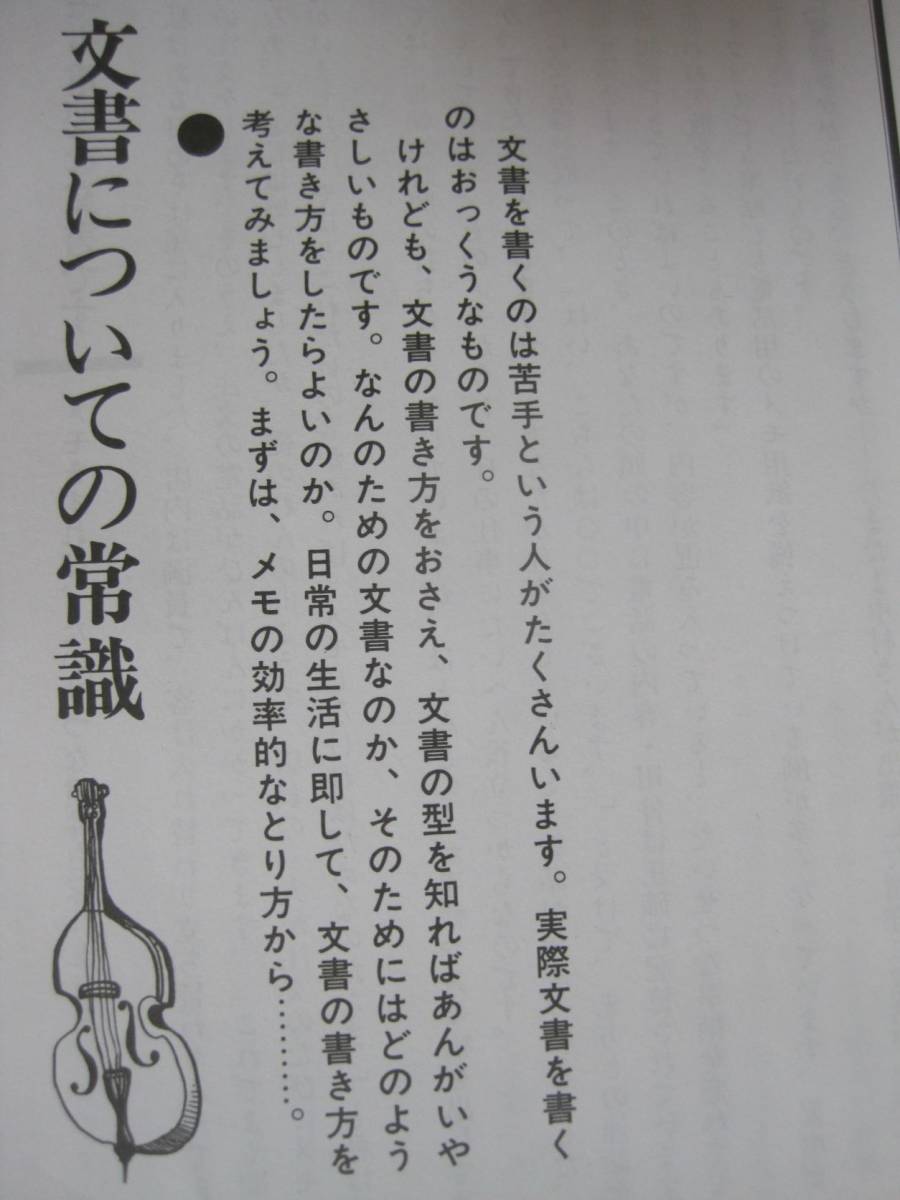 文書を書くのは苦手という人がたくさんいます。実際文書を書く
のはおっくうなものです。
けれども、文書の書き方をおさえ、文書の型を知ればあんがいや
さしいものです。なんのための文書なのか、そのためにはどのよう
な書き方をしたらよいのか。日常の生活に即して、文書の書き方を
考えてみましょう。まずは、メモの効率的なとり方から…………。
●
文書についての常識